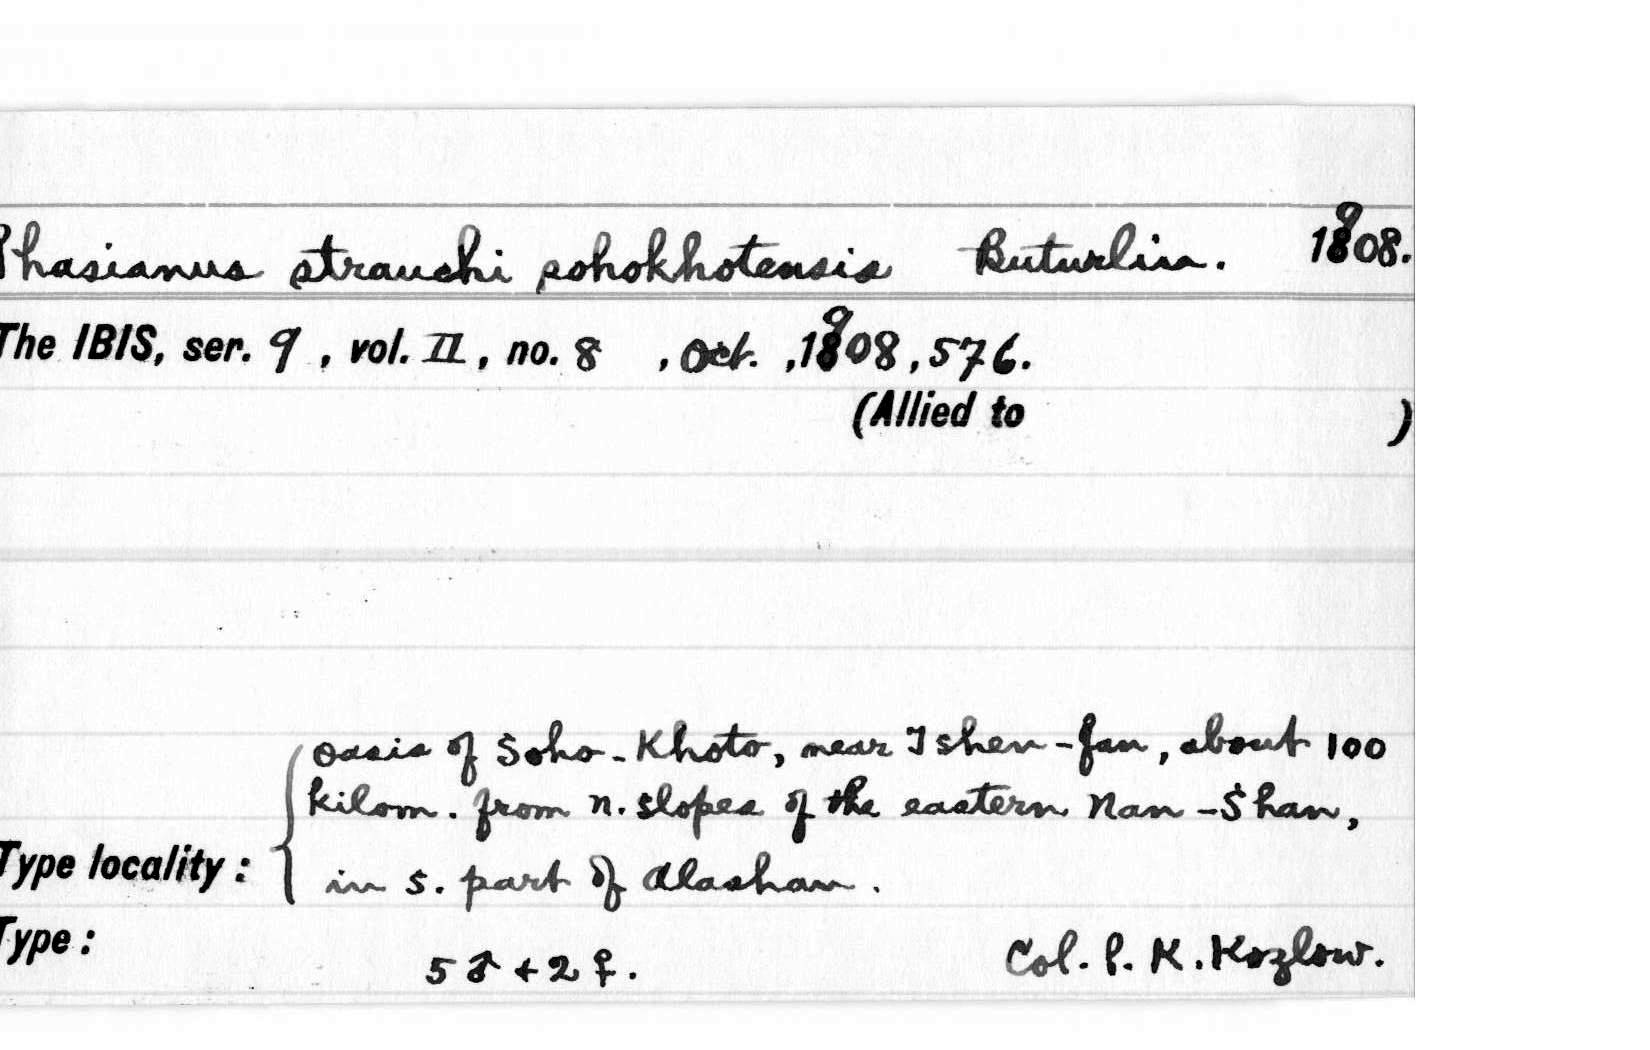 Phasianus strauchi sohokhotensis Buturlin. 1908.
The IBIS, ser. 9, vol. II, no. 8, Oct., 1908, 576.
(Allied to )
oasis of Soho-Khoto, near Tshen-fan, about 100
kilom. from n. slopes of the eastern Nan-Shan,
Type locality: in s. part of Alashan.
Type: 5♂ + 2♀. Col. P. K. Kozlow.